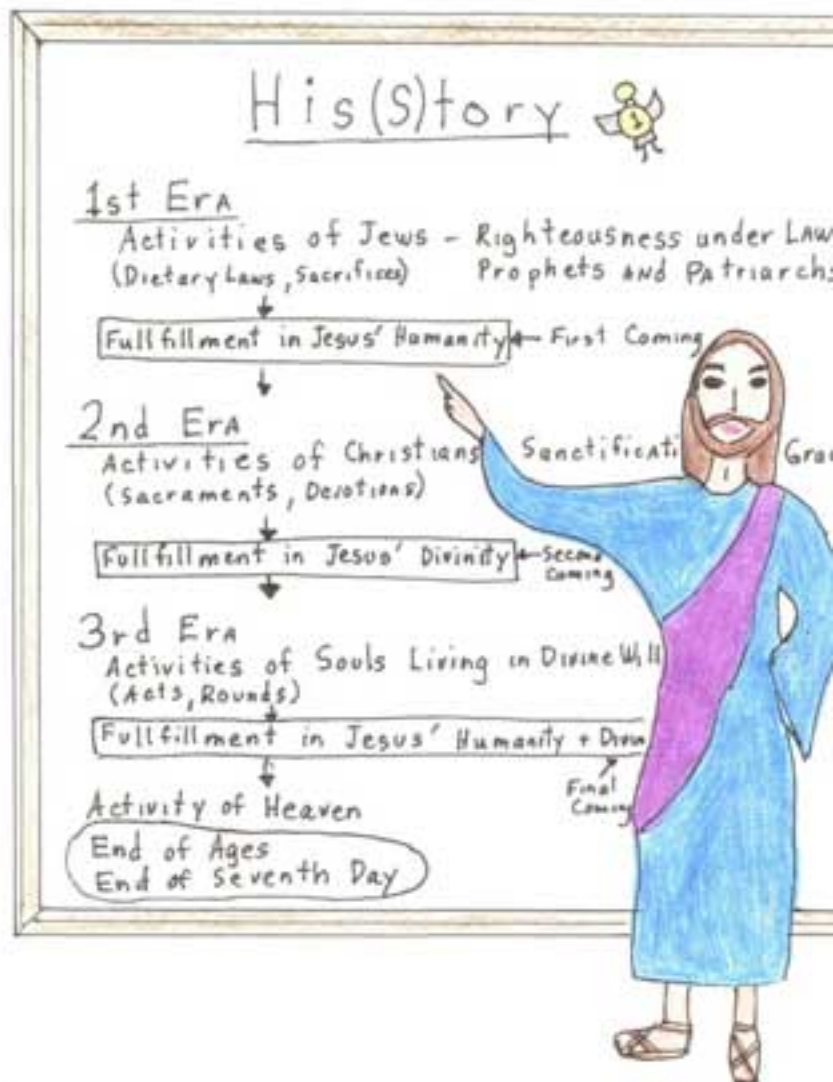 His(S)tory
1
1st Era
Activities of Jews - Righteousness under Law
(Dietary Laws, Sacrifices) Prophets and Patriarchs
Fullfillment in Jesus' Humanity First Coming
2nd Era
Activities of Christians
(Sacraments, Devotions)
Fullfillment in Jesus' Divinity Second
Coming
3rd Era
Activities of Souls Living in Divine Will
(Acts, Rounds)
Fullfillment in Jesus' Humanity +
Final
Coming
Activity of Heaven
End of Ages
End of Seventh Day